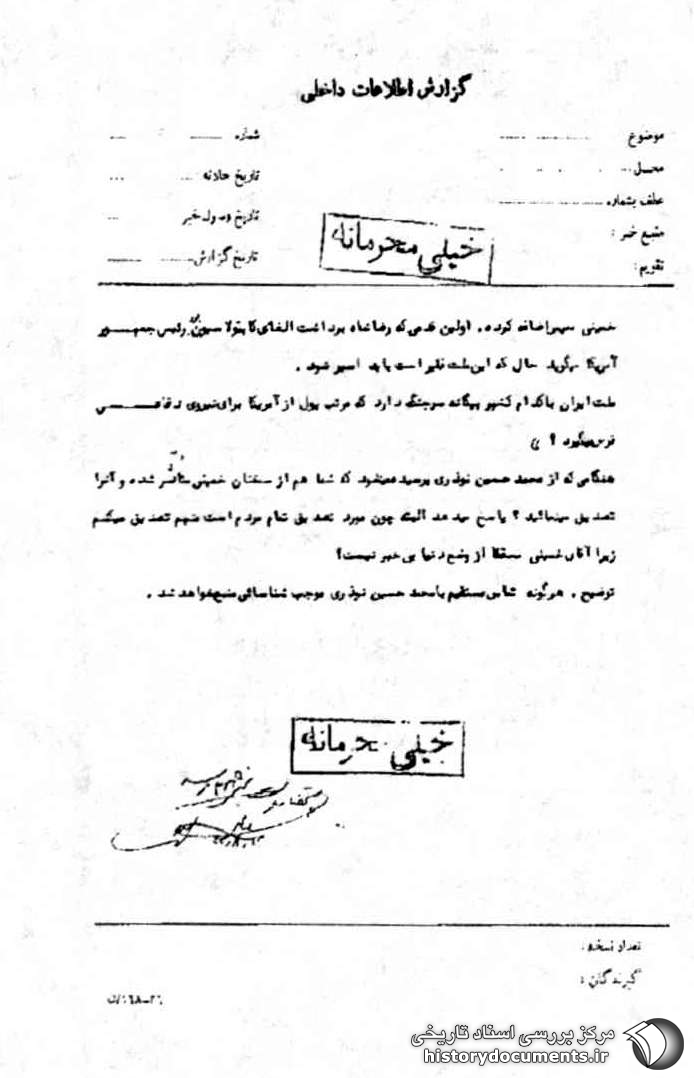 گزارش اطلاعات داخلی
موضوع
شماره
محـل
تاریخ حادثه
عطف بشماره
تاریخ وصول خبر
منبع خبر :
تقویم :
تاریخ گزارش
خیلی محرمانه
خمینی سپس اضافه کرده . اولین قدمی که رضاشاه برداشت الغای کاپیتولاسیون بود رئیس جمهور
آمریکا میگوید حال که این ملت فقیر است باید اسیر شود .
ملت ایران با کدام کشور بیگانه سرجنگ دارد که مرتب پول از آمریکا برای نیروی دفاعی
قرض میگیرد ؟
هنگامی که از محمد حسین نوذری پرسیده میشود که شما هم از سخنان خمینی متأثر شده و آنرا
تصدیق مینمائید ؟ پاسخ میدهد البته چون مورد تصدیق تمام مردم است منهم تصدیق میکنم
زیرا آقای خمینی مسلما از وضع دنیا بی خبر نیست ؟
توضیح . هرگونه تماس مستقیم با محمد حسین نوذری موجب شناسائی منبع خواهد شد .
خیلی محرمانه
تعداد نسخه :
گیرندگان :
مرکز بررسی اسناد تاریخی
historydocuments.ir